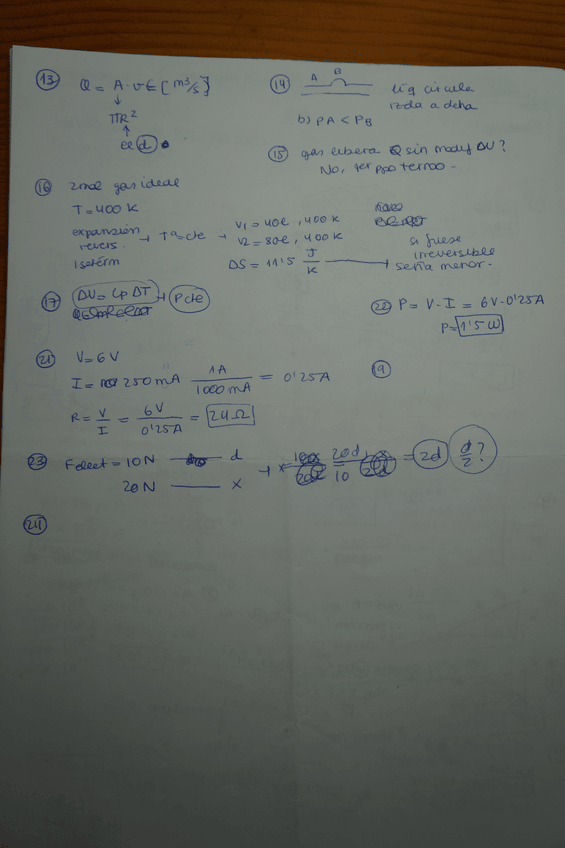 13 Q = A · v ∈ [m³/s]
↓
πR²
↑
d
14 A B
líq circula
izda a dcha
b) PA < PB
15 gas libera Q sin modif ΔU?
No, 1er ppo termo.
16 2mol gas ideal
T = 400 K
expansión
revers.
isotérm
→ Tª = cte →
V1 = 40l, 400 K
V2 = 80l, 400 K
ΔS = 11'5 J/K →
si fuese
irreversible
sería menor.
17 ΔU = Cp ΔT → P cte
22 P = V · I = 6V · 0'25A
P = 1'5 W
21 V = 6 V
I = 250 mA 1A / 1000 mA = 0'25A
R = V/I = 6V / 0'25A = 24 Ω
19
23 F elect = 10N — d
20N — x
→ x = 20d / 10 = 2d d/2?
24